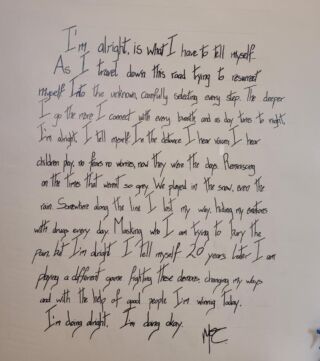 I'm alright, is what I have to tell myself.
As I travel down this road trying to resurrect
myself Into the unknown, carefully selecting every step. The deeper
I go the more I connect with every breath and as day turns to night,
I'm alright I tell myself. In the distance I hear voices, I hear
children play, no fears no worries, now they were the days. Reminiscing
on the times that weren't so grey. We played in the snow, even the
rain. Somewhere along the line I lost my way, hiding my emotions
with drugs every day. Masking who I am trying to bury the
pain, but I'm alright I tell myself. 20 years later I am
playing a different game fighting these demons, changing my ways
and with the help of good people I'm winning today.
I'm doing alright, I'm doing okay.